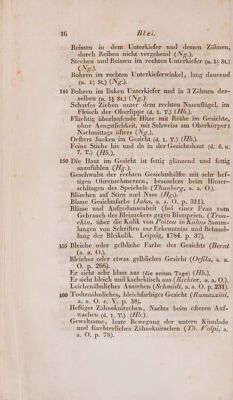 16 Blei.
Reissen in dem Unterkiefer und dessen Zähnen,
durch Reiben nicht vergehend (Ng.).
Stechen und Reissen im rechten Unterkiefer (n. ½ St.)
(Ng.).
Bohren im rechten Unterkieferwinkel, lang dauernd
(n. ½ St.) (Ng.).
145 Bohren im linken Unterkiefer und in 3 Zähnen des-
selben (n. 1½ St.) (Ng.)
Scharfes Ziehen unter dem rechten Nasenflügel, im
Fleisch der Oberlippe (d. 1. T.) (Hb.).
Flüchtig überlaufende Hitze mit Röthe im Gesichte,
ohne Aengstlichkeit, mit Schweiss am Oberkörper:
Nachmittags öfters (Ng.).
Oefters Jucken im Gesicht (d. 1. T.) (Hb.).
Feine Stiche hie und da in der Gesichtshaut (d. 6. u.
7. T.) (Hb.).
150 Die Haut im Gesicht ist fettig glänzend und fettig
anzufühlen (Hg.).
Geschwulst der rechten Gesichtshälfte mit sehr hef-
tigen Ohrenschmerzen, besonders beim Hinter-
schlingen des Speichels (Thunberg, a. a. O.).
Bläschen auf Stirn und Nase (Hg.).
Blaue Gesichtsfarbe (Jahn, a. a. O. p. 311).
Blässe und Aufgedunsenheit (bei einer Frau vom
Gebrauch des Bleizuckers gegen Blutspeien, (Tron-
chin, über die Kolik von Poitou in Kühns Samm-
lungen von Schriften zur Erkenntniss und Behand-
lung der Bleikolik. Leipzig, 1784. p. 37).
155 Bleiche oder gelbliche Farbe des Gesichts (Berat
(a. a. O.).
Bleiches oder etwas gelbliches Gesicht (Orfila, a. a.
O. p. 266).
Er sieht sehr blass aus (die ersten Tage) (Hb.).
Er sieht bleich und kachektisch aus (Richter, a. a. O.).
Leichenähnliches Aussehen (Schmidt, a. a. O. p. 231).
160 Todtenähnliches, bleichfarbiges Gesicht (Ramazzini,
a. a. O. c. V. p. 38).
Heftiges Zähneknirschen, Nachts beim öfteren Auf-
wachen (d. 1. T.) (Hb.).
Gewaltsame, laute Bewegung der untern Kinnlade
und fürchterliches Zähneknirschen (Th. Volpi, a.
a. O. p. 78).